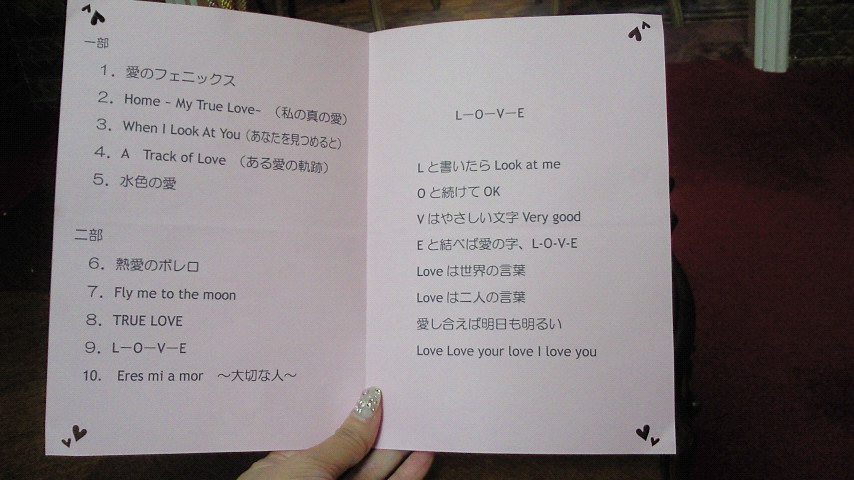 一部
１．愛のフェニックス
２．Home ~ My True Love~ （私の真の愛）
３．When I Look At You（あなたを見つめると）
４．A Track of Love （ある愛の軌跡）
５．水色の愛
二部
６．熱愛のボレロ
７．Fly me to the moon
８．TRUE LOVE
９．L－O－V－E
10. Eres mi a mor ～大切な人～
L－O－V－E
L と書いたら Look at me
O と続けて OK
V はやさしい文字 Very good
E と結べば愛の字、L-O-V-E
Love は世界の言葉
Love は二人の言葉
愛し合えば明日も明るい
Love Love your love I love you